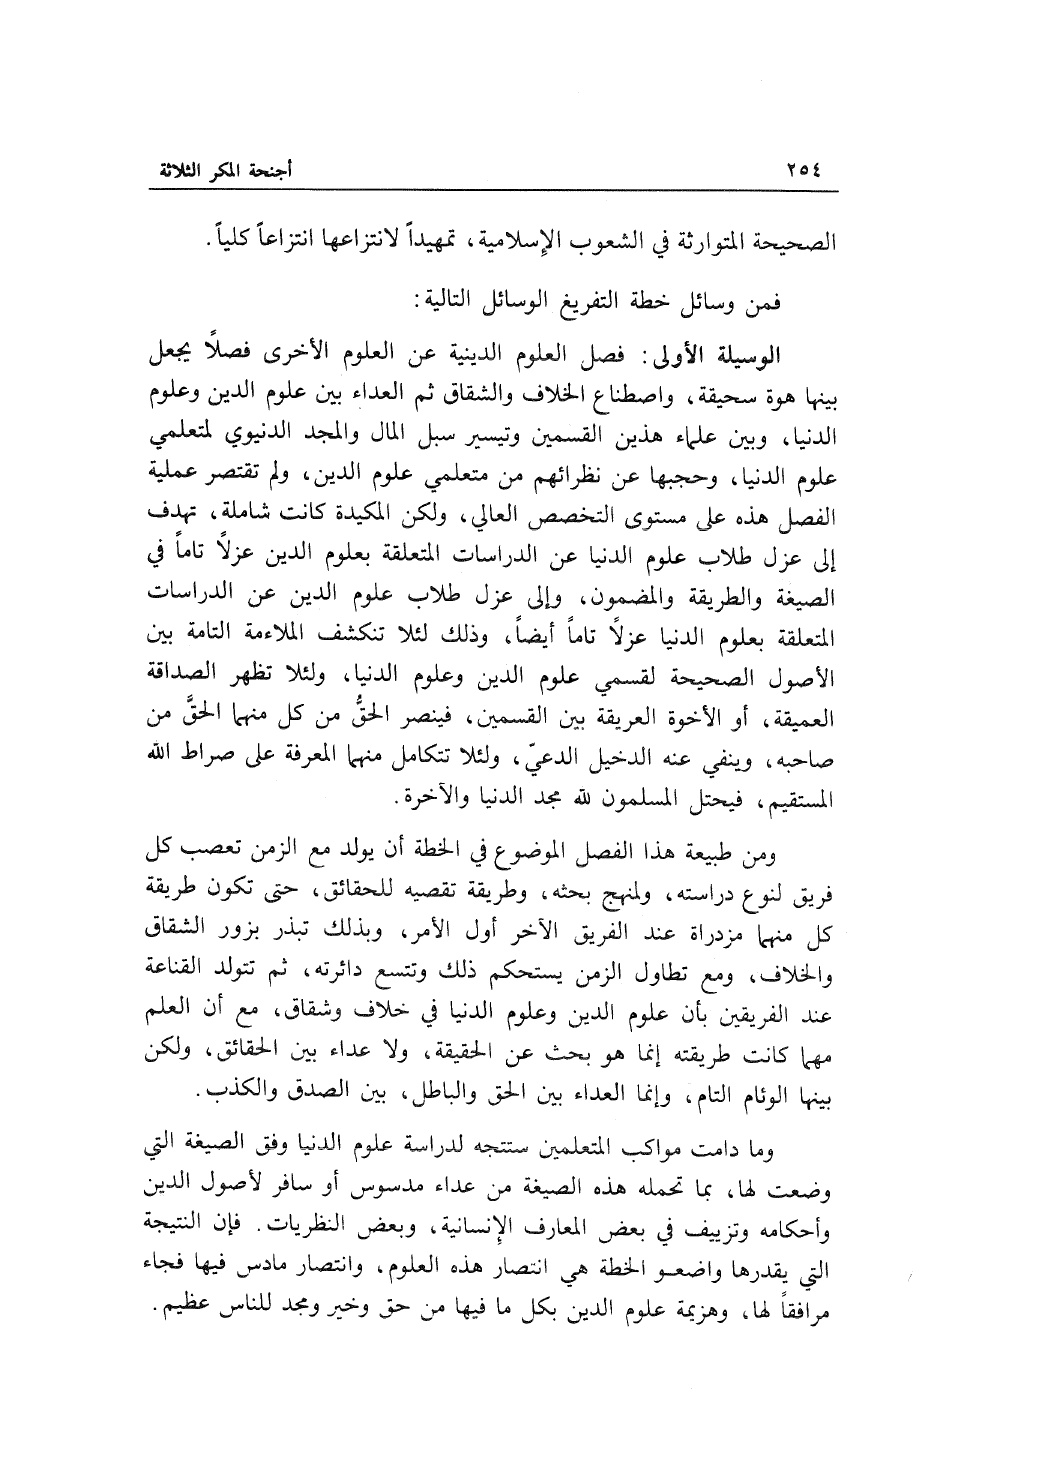 ٢٥٤ أجنحة المكر الثلاثة
الصحيحة المتوارثة في الشعوب الإسلامية، تمهيداً لانتزاعها انتزاعاً كلياً.
فمن وسائل خطة التفريغ الوسائل التالية:
الوسيلة الأولى: فصل العلوم الدينية عن العلوم الأخرى فصلًا يجعل
بينها هوة سحيقة، واصطناع الخلاف والشقاق ثم العداء بين علوم الدين وعلوم
الدنيا، وبين علماء هذين القسمين وتيسير سبل المال والمجد الدنيوي لمتعلمي
علوم الدنيا، وحجبها عن نظرائهم من متعلمي علوم الدين، ولم تقتصر عملية
الفصل هذه على مستوى التخصص العالي، ولكن المكيدة كانت شاملة، تهدف
إلى عزل طلاب علوم الدنيا عن الدراسات المتعلقة بعلوم الدين عزلًا تاماً في
الصيغة والطريقة والمضمون، وإلى عزل طلاب علوم الدين عن الدراسات
المتعلقة بعلوم الدنيا عزلًا تاماً أيضاً، وذلك لئلا تنكشف الملاءمة التامة بين
الأصول الصحيحة لقسمي علوم الدين وعلوم الدنيا، ولئلا تظهر الصداقة
العميقة، أو الأخوة العريقة بين القسمين، فينصر الحقُّ من كل منهما الحقَّ من
صاحبه، وينفي عنه الدخيل الدعيّ، ولئلا تتكامل منهما المعرفة على صراط الله
المستقيم، فيحتل المسلمون لله مجد الدنيا والآخرة.
ومن طبيعة هذا الفصل الموضوع في الخطة أن يولد مع الزمن تعصب كل
فريق لنوع دراسته، ولمنهج بحثه، وطريقة تقصيه للحقائق، حتى تكون طريقة
كل منهما مزدراة عند الفريق الآخر أول الأمر، وبذلك تبذر بزور الشقاق
والخلاف، ومع تطاول الزمن يستحكم ذلك وتتسع دائرته، ثم تتولد القناعة
عند الفريقين بأن علوم الدين وعلوم الدنيا في خلاف وشقاق، مع أن العلم
مهما كانت طريقته إنما هو بحث عن الحقيقة، ولا عداء بين الحقائق، ولكن
بينها الوئام التام، وإنما العداء بين الحق والباطل، بين الصدق والكذب.
وما دامت مواكب المتعلمين ستتجه لدراسة علوم الدنيا وفق الصيغة التي
وضعت لها، بما تحمله هذه الصيغة من عداء مدسوس أو سافر لأصول الدين
وأحكامه وتزييف في بعض المعارف الإنسانية، وبعض النظريات. فإن النتيجة
التي يقدرها واضعو الخطة هي انتصار هذه العلوم، وانتصار مادس فيها فجاء
مرافقاً لها، وهزيمة علوم الدين بكل ما فيها من حق وخير ومجد للناس عظيم.